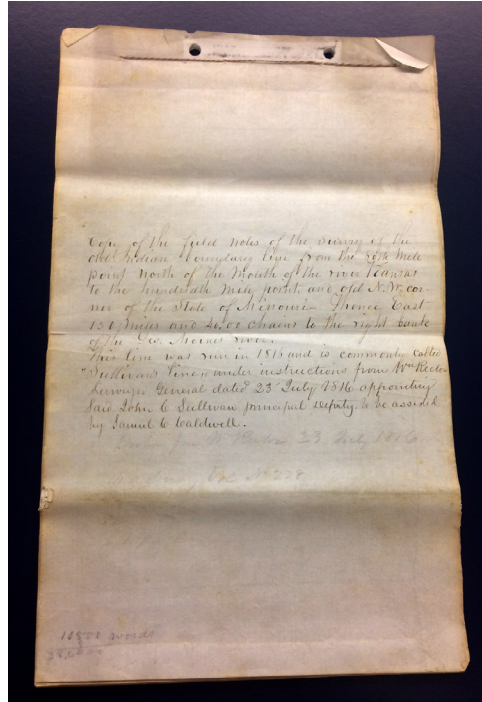 Copy of the field notes of the survey of the
old Indian boundary line from the mile
point north of the mouth of the river Kansas
to the hundredth mile point, and old N.W. cor-
ner of the State of Missouri - Thence East
150 miles and chains to the right bank
of the Des Moines river.
This line was run in 1816 and is commonly called
"Sullivan's line" under instructions from Wm Rector
Surveyor General dated 23 July 1816 appointing
said John C Sullivan principal deputy, to be assisted
by Samuel C. Caldwell.
23 July 1816
No 228
words